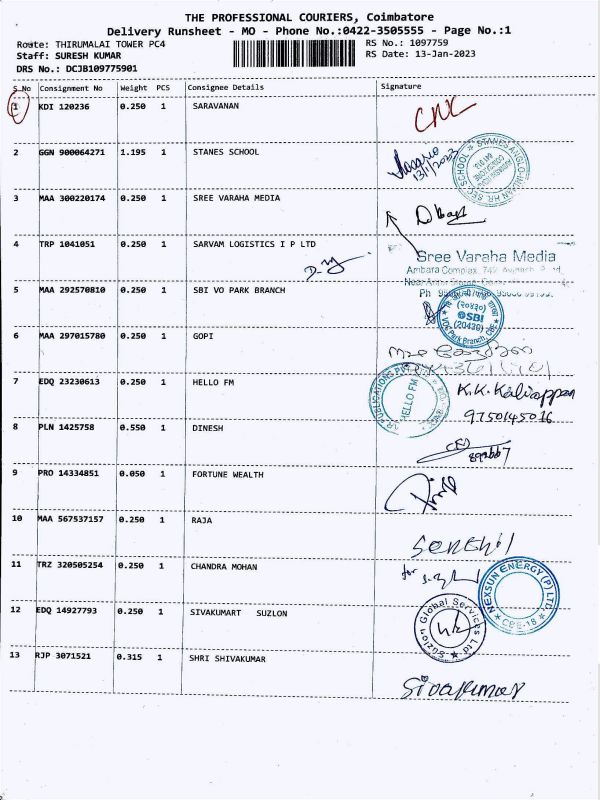 THE PROFESSIONAL COURIERS, Coimbatore
Delivery Runsheet - MO - Phone No.:0422-3505555 - Page No.:1
Route: THIRUMALAI TOWER PC4
RS No.: 1097759
Staff: SURESH KUMAR
RS Date: 13-Jan-2023
DRS No.: DCJB109775901
S No Consignment No Weight PCS Consignee Details Signature
1 KDI 120236 0.250 1 SARAVANAN
2 GGN 900064271 1.195 1 STANES SCHOOL
13/1/2023
STANES ANGLO-INDIAN HR. SEC. SCHOOL
3 MAA 300220174 0.250 1 SREE VARAHA MEDIA
4 TRP 1041051 0.250 1 SARVAM LOGISTICS I P LTD
Sree Varaha Media
Ambara Complex, 742
5 MAA 292570810 0.250 1 SBI VO PARK BRANCH
Ph
SBI
(20439)
VOC Park Branch, CBE
6 MAA 297015780 0.250 1 GOPI
7 EDQ 23230613 0.250 1 HELLO FM
HELLO FM
K.K. Kaliappan
9750145016
8 PLN 1425758 0.550 1 DINESH
9 PRO 14334851 0.050 1 FORTUNE WEALTH
10 MAA 567537157 0.250 1 RAJA
11 TRZ 320505254 0.250 1 CHANDRA MOHAN
for
NEXSUN ENERGY (P) LTD.
CBE-18
12 EDQ 14927793 0.250 1 SIVAKUMART SUZLON
Suzlon Global Services Ltd
13 RJP 3071521 0.315 1 SHRI SHIVAKUMAR
Sivakumar